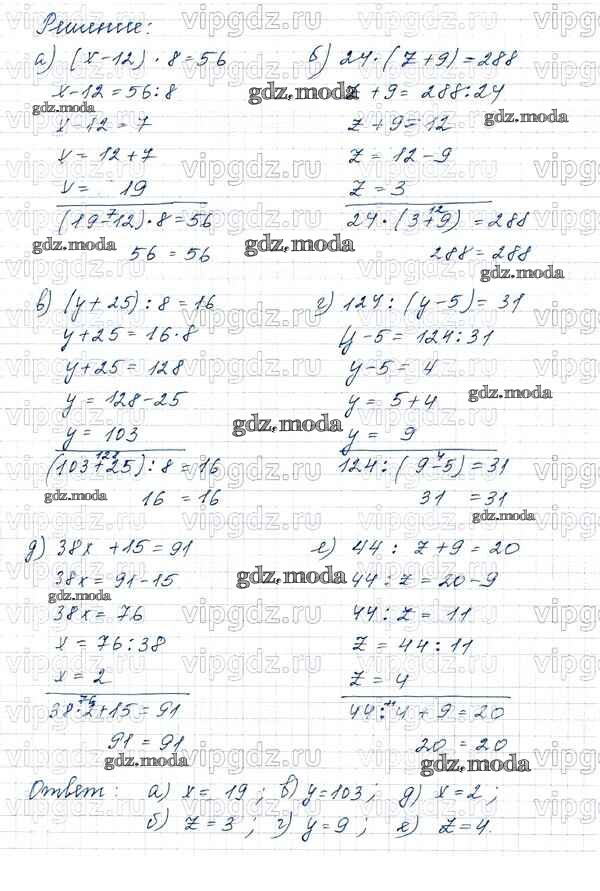 Решение:
а) (x-12) · 8 = 56
x-12 = 56:8
x-12 = 7
x = 12+7
x = 19
(19-12) · 8 = 56
7
56 = 56
б) 24 · (z+9) = 288
z+9 = 288:24
z+9 = 12
z = 12-9
z = 3
24 · (3+9) = 288
12
288 = 288
в) (y+25) : 8 = 16
y+25 = 16·8
y+25 = 128
y = 128-25
y = 103
(103+25) : 8 = 16
128
16 = 16
г) 124 : (y-5) = 31
y-5 = 124:31
y-5 = 4
y = 5+4
y = 9
124 : (9-5) = 31
4
31 = 31
д) 38x + 15 = 91
38x = 91-15
38x = 76
x = 76:38
x = 2
38·2+15 = 91
76
91 = 91
е) 44 : z+9 = 20
44 : z = 20-9
44 : z = 11
z = 44:11
z = 4
44:4 + 9 = 20
11
20 = 20
Ответ: а) x = 19; в) y=103; д) x=2;
б) z = 3; г) y=9; е) z=4.
gdz.moda
vipgdz.ru